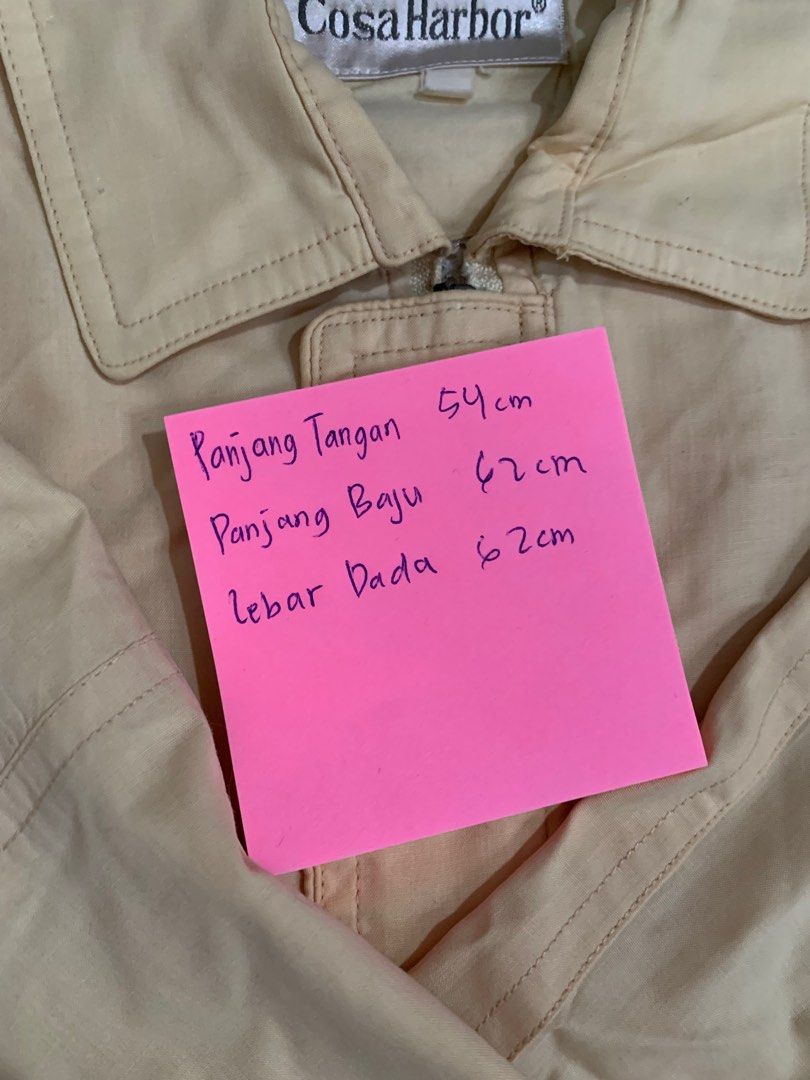 Cosa Harbor®
Panjang Tangan 54 cm
Panjang Baju 62 cm
Lebar Dada 62 cm